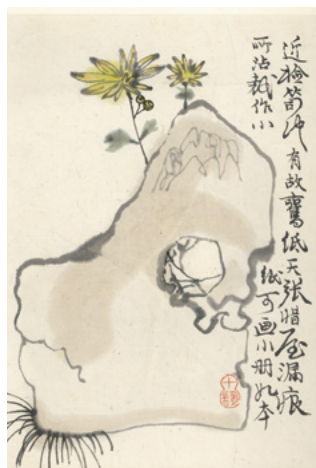 近捡笥有故舊紙张惜屋漏痕
所沾裁作小
紙可画小册本